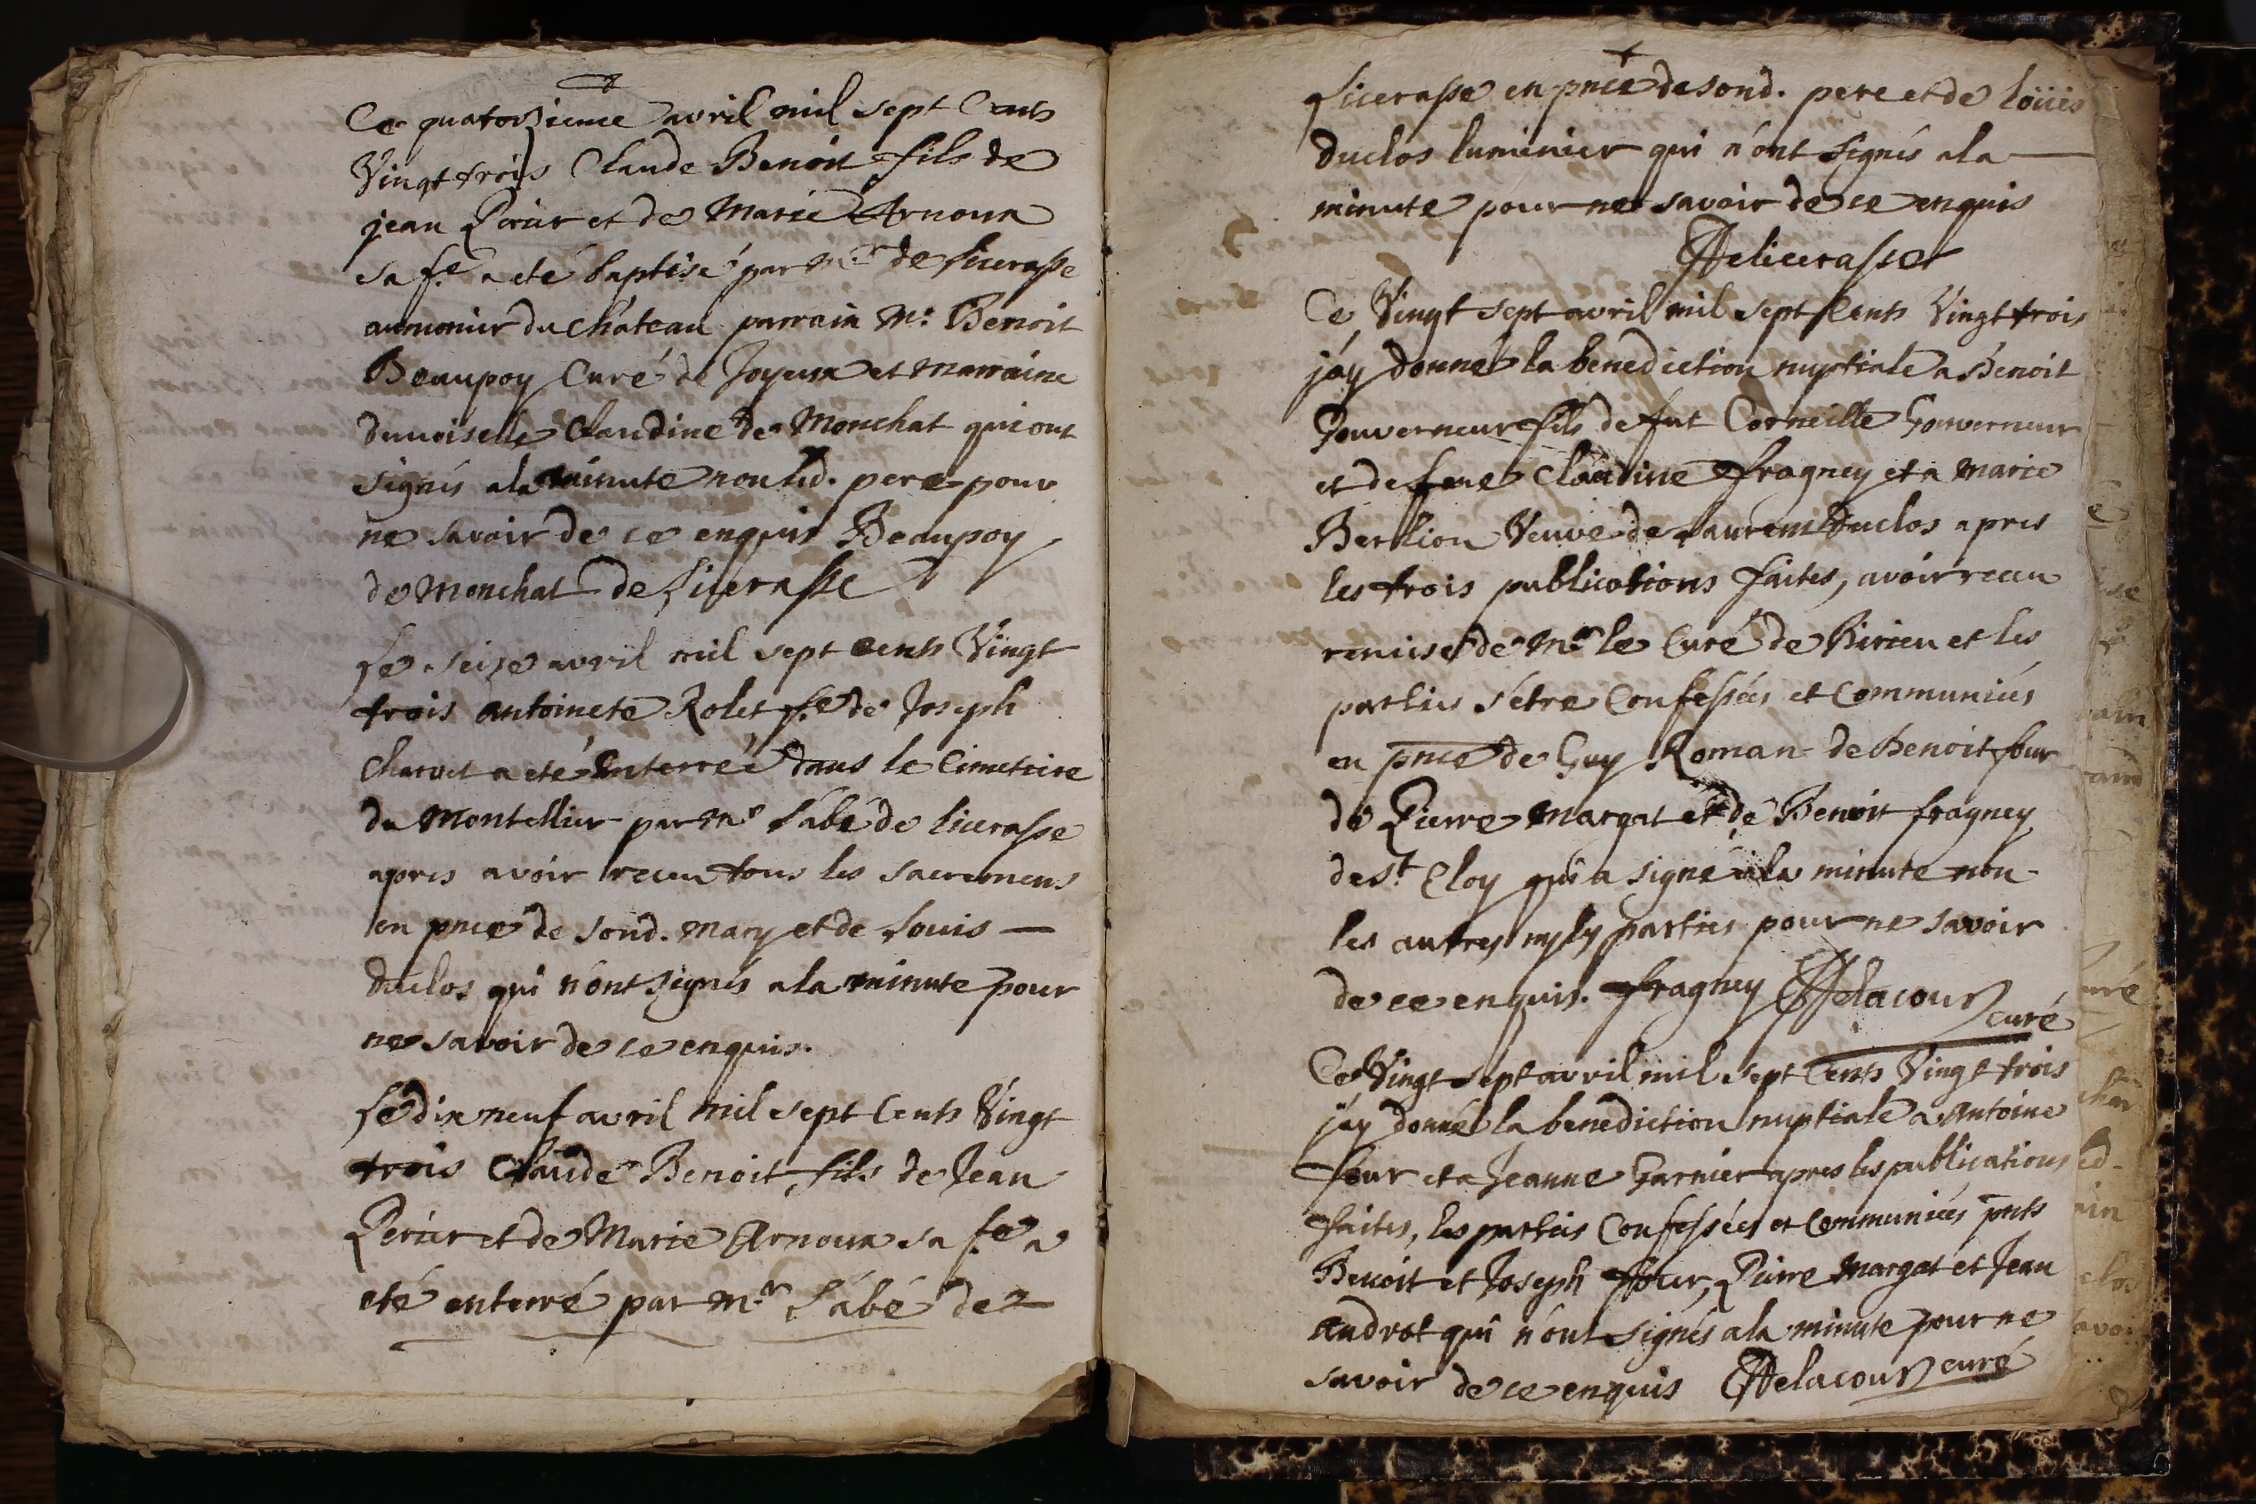 Ce quatorzieme avril mil sept Cents
Vingt trois Claude Benoit fils de
jean Perier et de Marie Arnoux
sa fe. a eté baptisé par Mr. de Licerasse
aumonier du Château parrain Mr. Benoit
Beaupoy Curé de Joyeux et marraine
dmoiselle Claudine de Monchat qui ont
signés ala minute non led. pere pour
ne savoir de ce enquis Beaupoy
de Monchat de Licerasse
Le seize avril mil sept cents Vingt
trois antoinete Rolet fe. de Joseph
Charvet a eté enterrée dans le Cimetiere
du Montellier par Mr. L'abé de licerasse
apres avoir receu tous les sacremens
en pnce de sond. mary et de Louis —
duclos qui n'ont signés ala minute pour
ne savoir de ce enquis.
Le dix neuf avril mil sept Cents Vingt
trois Claude Benoit fils de Jean
Perier et de Marie Arnoux sa fe. a
eté enterré par Mr. L'abé de —
Licerasse en pnce de sond. pere et de loüis
duclos luminier qui n'ont signés ala —
minute pour ne savoir de ce enquis
Delicerasse
Ce Vingt sept avril mil sept Cents Vingt trois
j'ay donné la benediction nuptiale a Benoit
Gouverneur fils de fut Corneille Gouverneur
et de feue Claudine Fragney et a Marie
Berlion Veuve de Laurent duclos apres
les trois publications faites, avoir receu
remise de Mr. le Curé de Birieu et les
parties s'etre Confessées et Communiées
en pnce de Guy Roman de Benoit four
de Pierre Margat et de Benoit fragney
de St. Eloy qui a signé ala minute non
les autres ny ly parties pour ne savoir
de ce enquis. fragney Delacour
curé
Ce Vingt sept avril mil sept Cents Vingt trois
j'ay donné la benediction nuptiale a Antoine
four et a Jeanne Garnier apres les publications
faites, les parties Confessées et Communiées pnts
Benoit et Joseph ffour, Pierre Margat et Jean
Androt qui n'ont signés ala minute pour ne
savoir de ce enquis Delacour curé